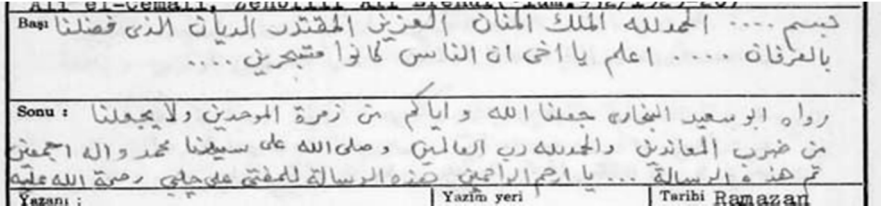 Ali el-Cemali, Zenbilli Ali Efendi
Başı بسم .... الحمدلله الملك المنان العزيز المقتدر الديان الذى فضلنا
بالعرفان ..... اعلم يا اخى ان الناس كانوا متبحرين ....
Sonu : رواه ابو سعيد البخارى جعلنا الله و اياكم من زمرة الموحدين ولا يجعلنا
من ضرب المعاندين والحمدلله رب العالمين و صلى الله على سيدنا محمد و اله اجمعين
تم هذه الرسالة ... يا ارحم الراحمين هذه الرسالة للمفتى على چلبى رحمة الله عليه
Yazanı : Yazım yeri Tarihi Ramazan